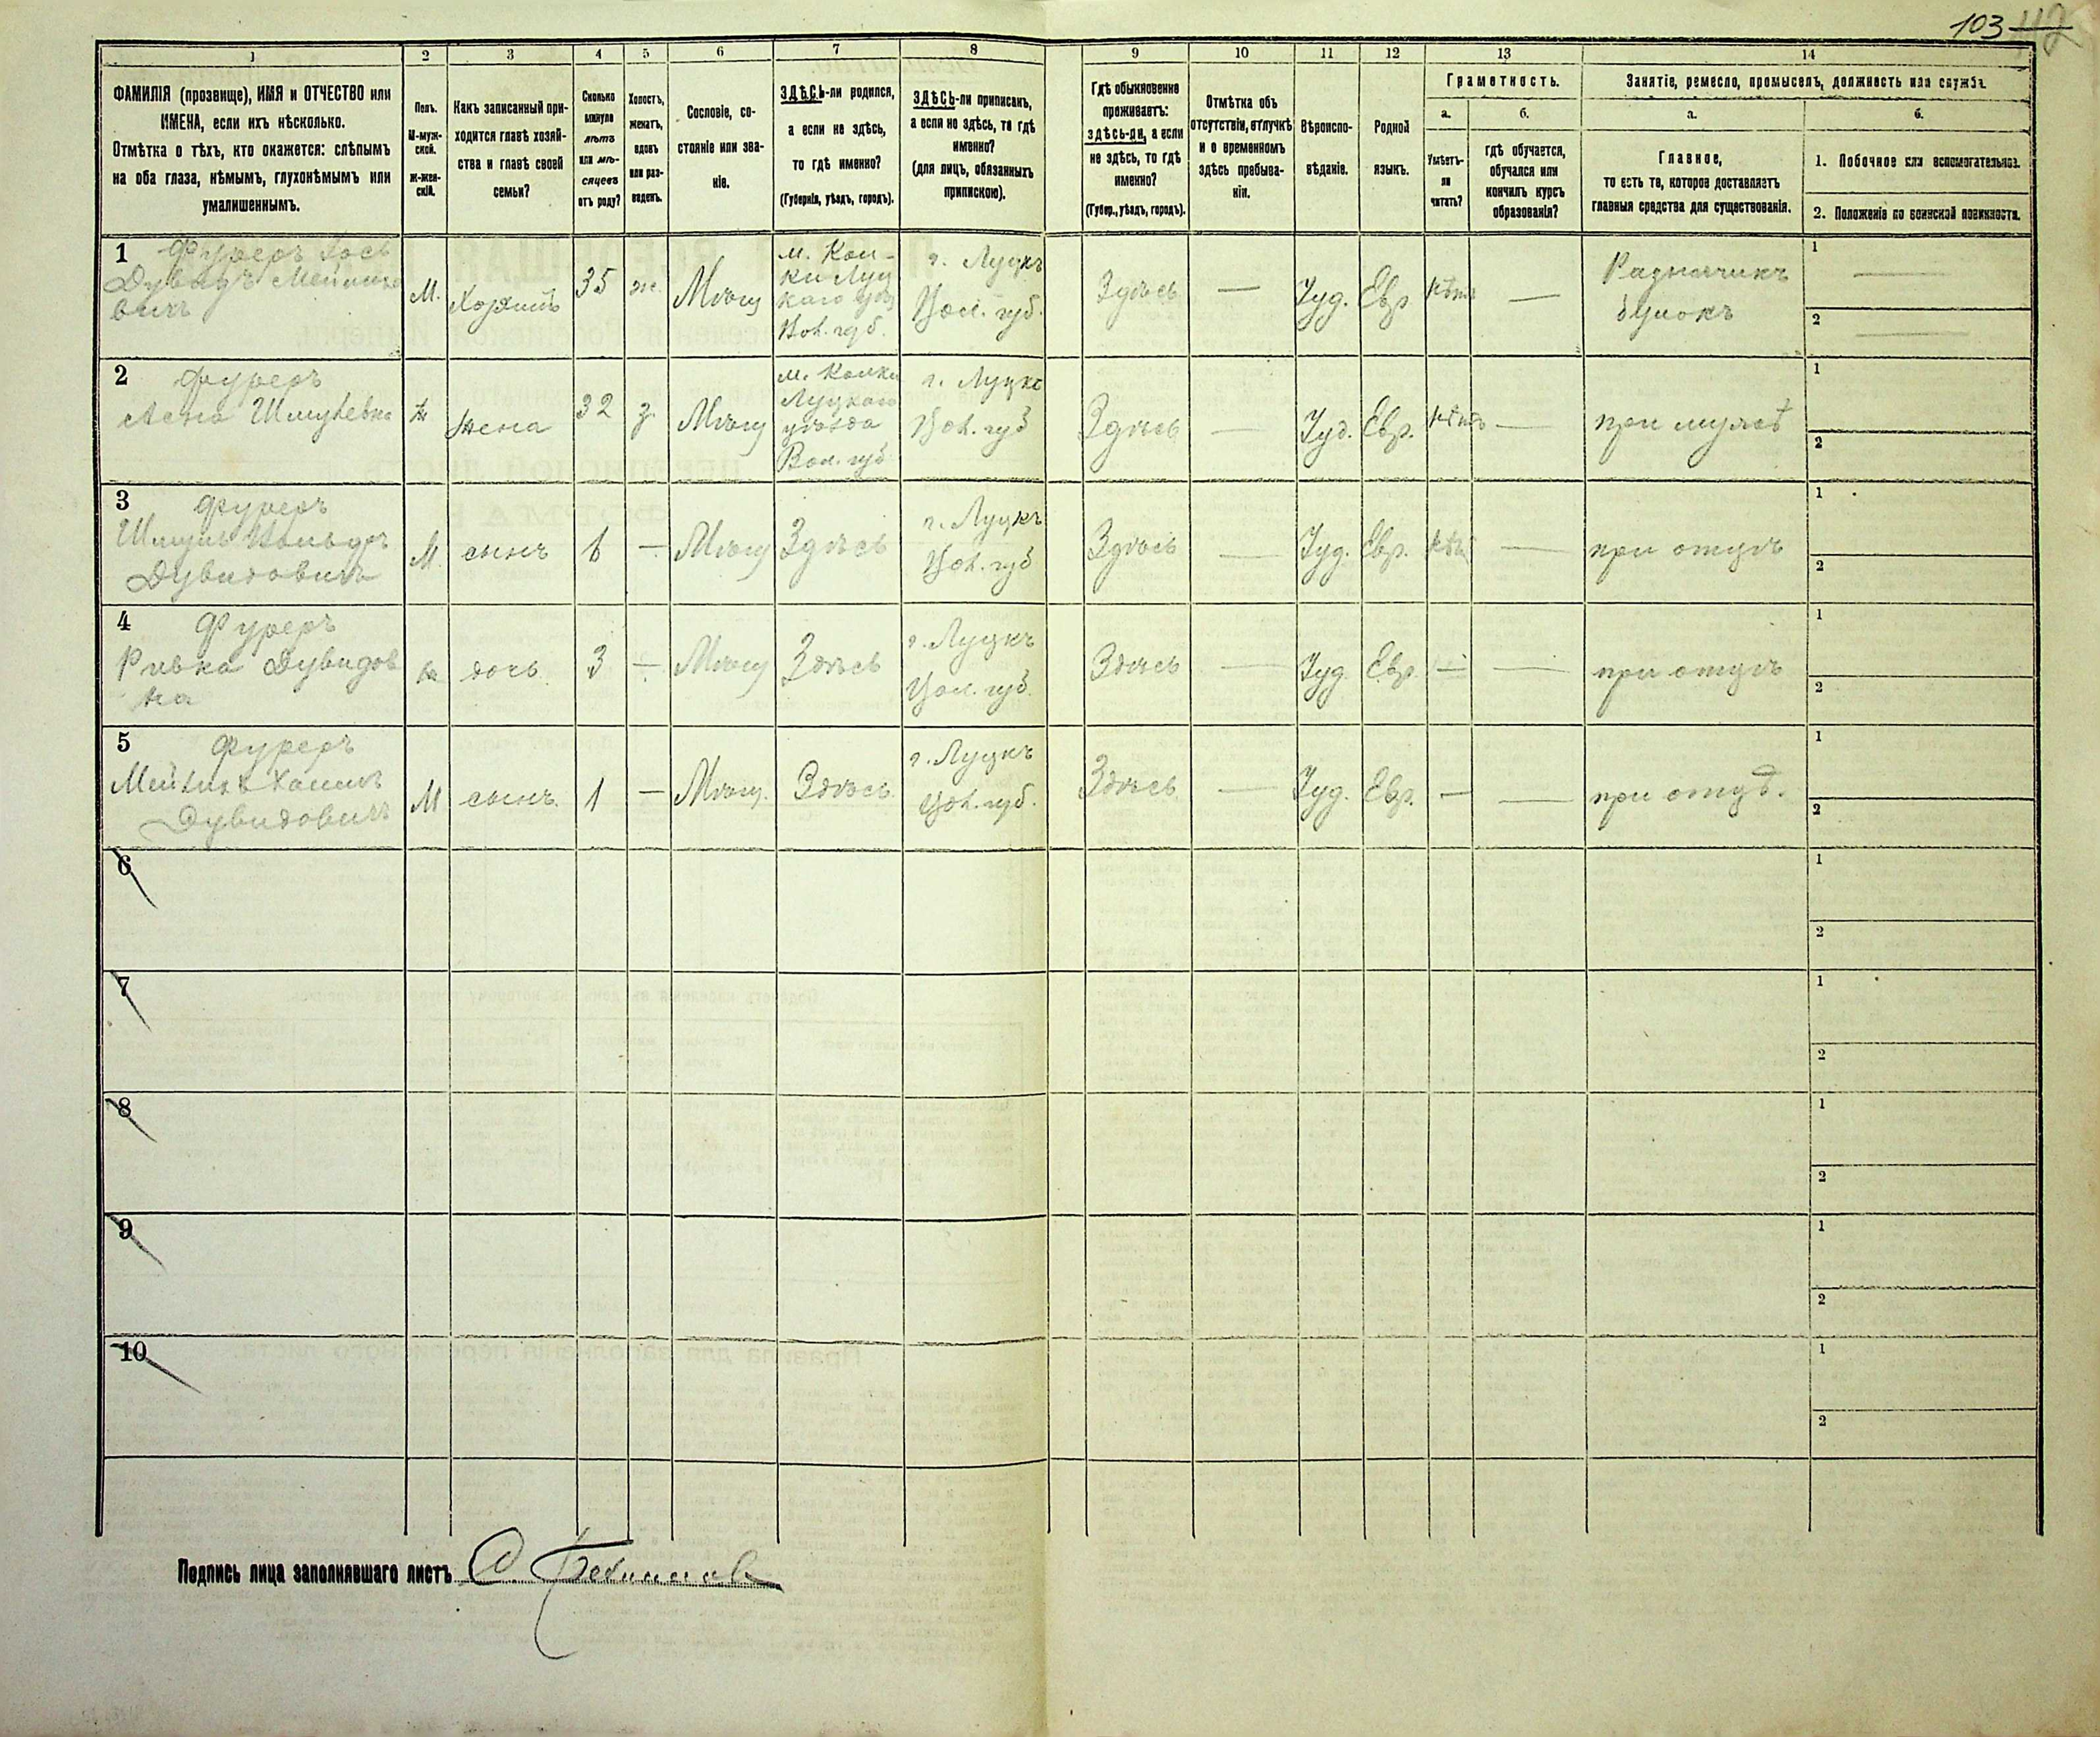 103 112
1 2 3 4 5 6 7 8 9 10 11 12 13 14
ФАМИЛІЯ (прозвище), ИМЯ и ОТЧЕСТВО или
ИМЕНА, если ихъ нѣсколько.
Отмѣтка о тѣхъ, кто окажется: слѣпымъ
на оба глаза, нѣмымъ, глухонѣмымъ или
умалишеннымъ.
Полъ.
М-муж-
ской.
ж-жен-
скій.
Какъ записанный при-
ходится главѣ хозяй-
ства и главѣ своей
семьи?
Сколько
минуло
лѣтъ
или мѣ-
сяцевъ
отъ роду?
Холостъ,
женатъ,
вдовъ
или раз-
веденъ.
Сословіе, со-
стояніе или зва-
ніе.
ЗДѢСЬ-ли родился,
а если не здѣсь,
то гдѣ именно?
(Губернія, уѣздъ, городъ).
ЗДѢСЬ-ли приписанъ,
а если не здѣсь, то гдѣ
именно?
(для лицъ, обязанныхъ
припискою).
Гдѣ обыкновенно
проживаетъ:
здѣсь-ли, а если
не здѣсь, то гдѣ
именно?
(Губер., уѣздъ, городъ).
Отмѣтка объ
отсутствіи, отлучкѣ
и о временномъ
здѣсь пребыва-
ніи.
Вѣроиспо-
вѣданіе.
Родной
языкъ.
Грамотность.
а.
Умѣетъ-
ли
читать?
б.
гдѣ обучается,
обучался или
кончилъ курсъ
образованія?
Занятіе, ремесло, промыселъ, должность или служба.
а.
Главное,
то есть то, которое доставляетъ
главныя средства для существованія.
б.
1. Побочное или вспомогательное.
2. Положеніе по воинской повинности.
1
Фуреръ
М.
Хозяинъ
35
ж.
Мѣщ
м. Кол-
ки Луц
каго
Вол. губ.
г. Луцкъ
Вол. губ.
Здѣсь
—
Іуд.
Евр
нѣтъ
—
1 —
2 —
2
Фуреръ
Шмулевна
ж
жена
32
з.
Мѣщ
м. Колки
Луцкаго
уѣзда
Вол. губ
г. Луцкъ
Вол. губ
Здѣсь
—
Іуд.
Евр.
нѣтъ
—
при мужѣ
1
2
3
Фуреръ
Дувидовичъ
М
сынъ
6
—
Мѣщ
Здѣсь
г. Луцкъ
Вол. губ
Здѣсь
—
Іуд.
Евр.
нѣтъ
—
при отцѣ
1
2
4
Фуреръ
Ривка Дувидов
на
ж
дочь
3
—
Мѣщ
Здѣсь
г. Луцкъ
Вол. губ.
Здѣсь
—
Іуд
Евр.
—
—
при отцѣ
1
2
5
Фуреръ
Дувидовичъ
М
сынъ
1
—
Мѣщ.
Здѣсь
г. Луцкъ
Вол. губ.
Здѣсь
—
Іуд.
Евр.
—
—
при отцѣ.
1
2
6
1
2
7
1
2
8
1
2
9
1
2
10
1
2
Подпись лица заполнявшаго листъ